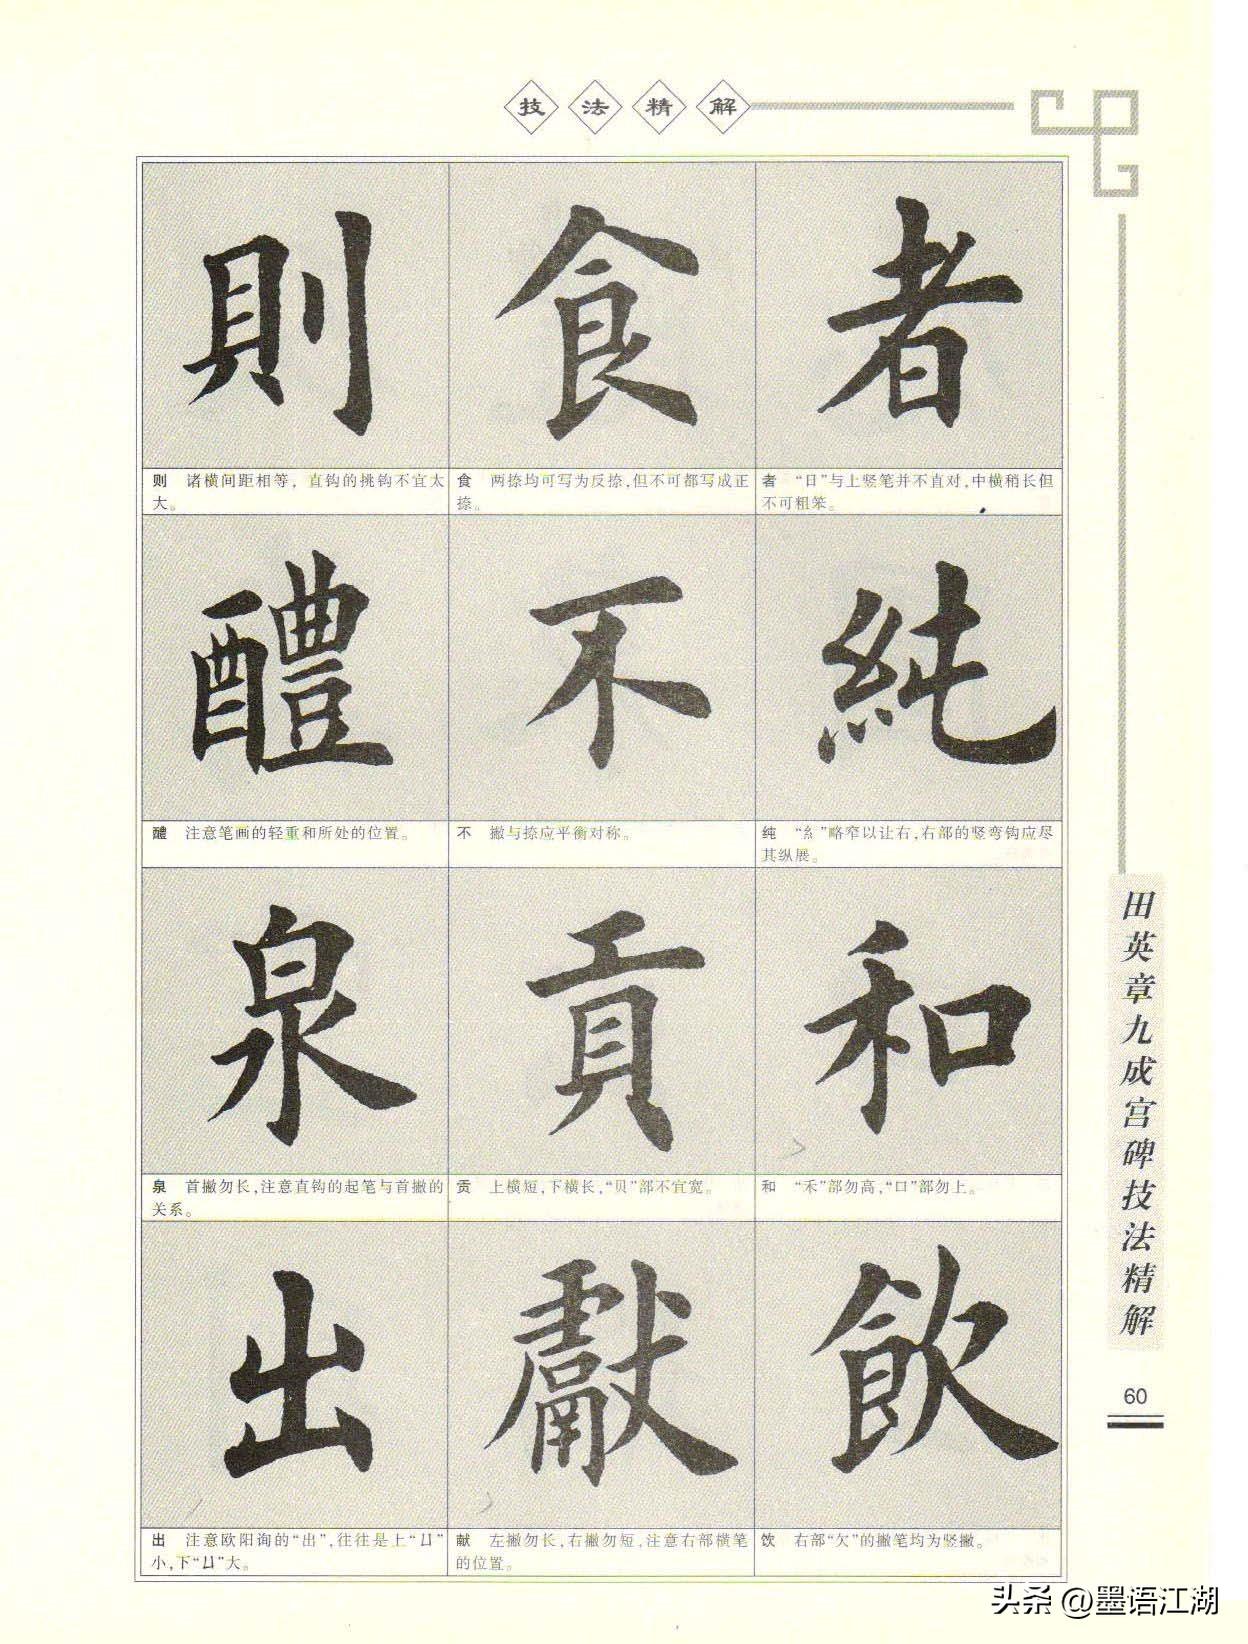 技法精解
則 食 者
则 诸横间距相等，直钩的挑钩不宜太
大。
食 两捺均可写为反捺，但不可都写成正
捺。
者 “日”与上竖笔并不直对，中横稍长但
不可粗笨。
醴 不 純
醴 注意笔画的轻重和所处的位置。
不 撇与捺应平衡对称。
纯 “糹”略窄以让右，右部的竖弯钩应尽
其纵展。
泉 貢 和
泉 首撇勿长，注意直钩的起笔与首撇的
关系。
贡 上横短，下横长，“贝”部不宜宽。
和 “禾”部勿高，“口”部勿上。
出 獻 飲
出 注意欧阳询的“出”，往往是上“凵”
小，下“凵”大。
献 左撇勿长，右撇勿短，注意右部横笔
的位置。
饮 右部“欠”的撇笔均为竖撇。
田英章九成宫碑技法精解
60
头条 @墨语江湖